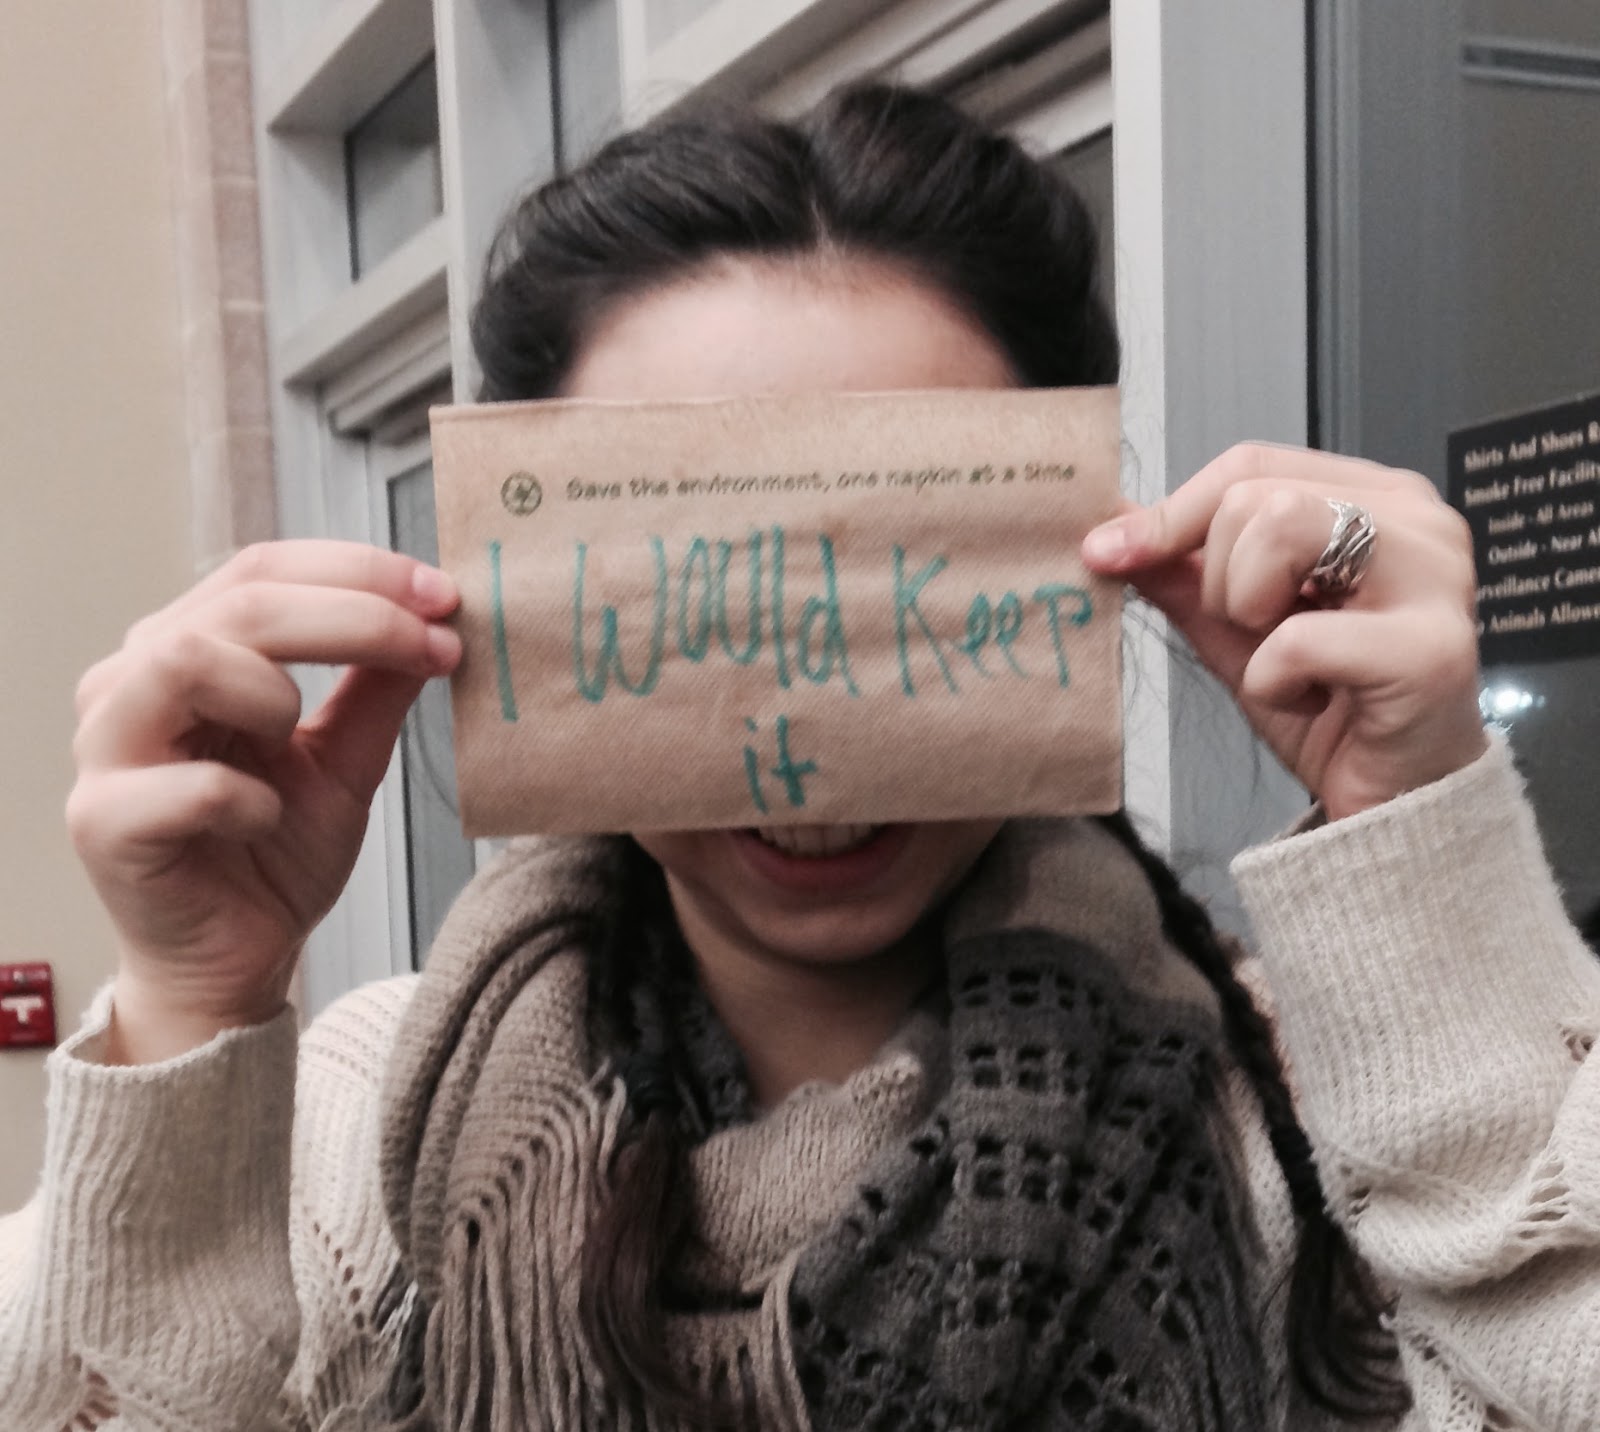 Save the environment, one napkin at a time
I Would Keep
it
Shirts And Shoes
Smoke Free Facility
Inside - All Areas
Outside - Near
Animals Allowe